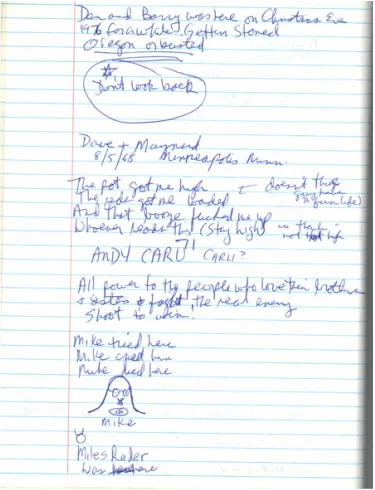 Dan and Barry was here on Christmas Eve
1976 for awhile. Gettin Stoned
Oregon or busted
Don't look back
Dave + Maynard
8/5/68 Minneapolis Minn.
The pot got me high
The reds got me loaded
And that booze fucked me up
Whoever reads this (Stay high)
doesn't this
guy have
life)
no thanks
not high
ANDY CARU
CARLI?
All power to the people who love their brothers
+ sisters + fight the real enemy
Shoot to win!
Mike tried here
Mike cried here
Mike died here
Mike
Miles Rader
was here